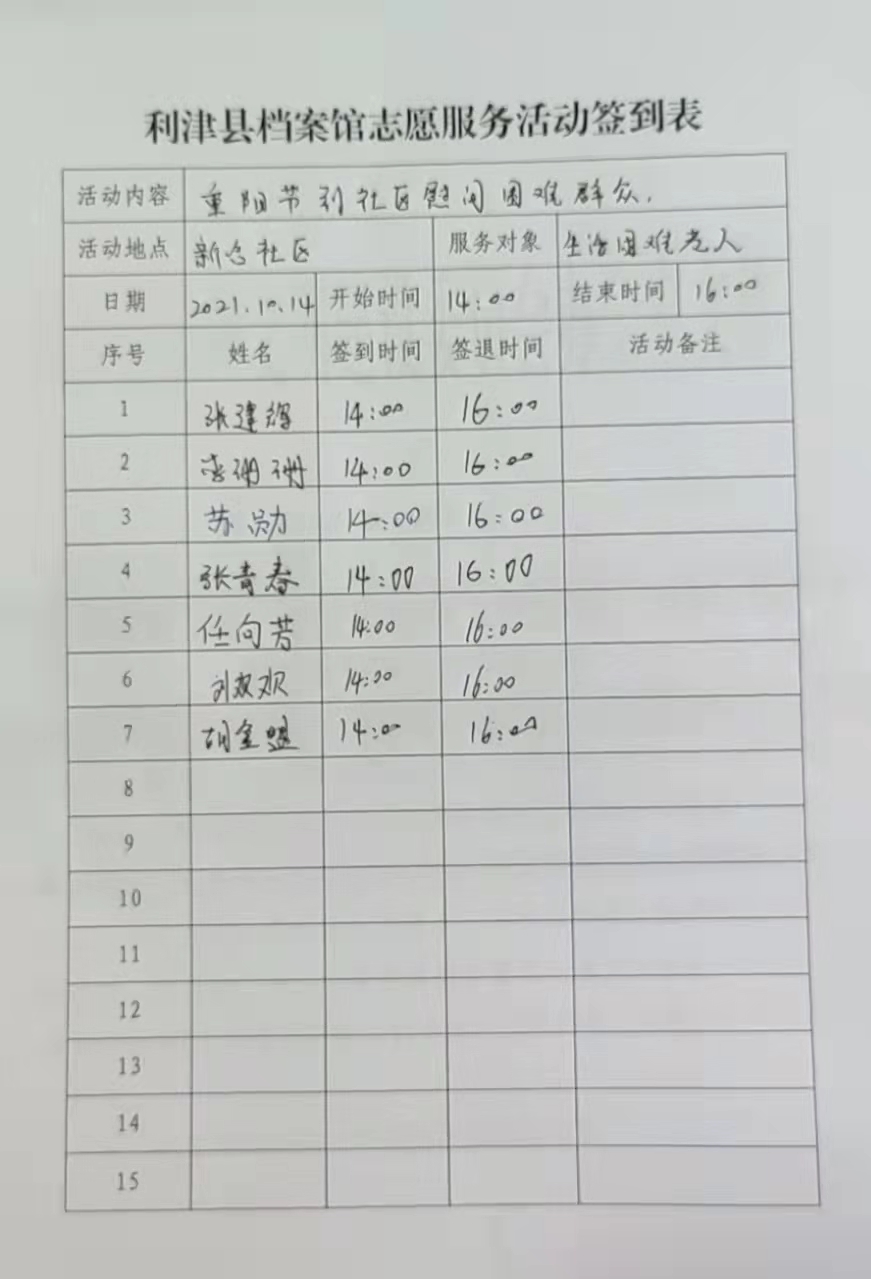 利津县档案馆志愿服务活动签到表
活动内容 重阳节到社区慰问困难群众.
活动地点 新合社区 服务对象 生活困难老人
日期 2021.10.14 开始时间 14:00 结束时间 16:00
序号 姓名 签到时间 签退时间 活动备注
1 张建辉 14:00 16:00
2 李珊珊 14:00 16:00
3 苏勋 14:00 16:00
4 张青春 14:00 16:00
5 任向芳 14:00 16:00
6 刘双双 14:00 16:00
7 胡金盟 14:00 16:00
8
9
10
11
12
13
14
15